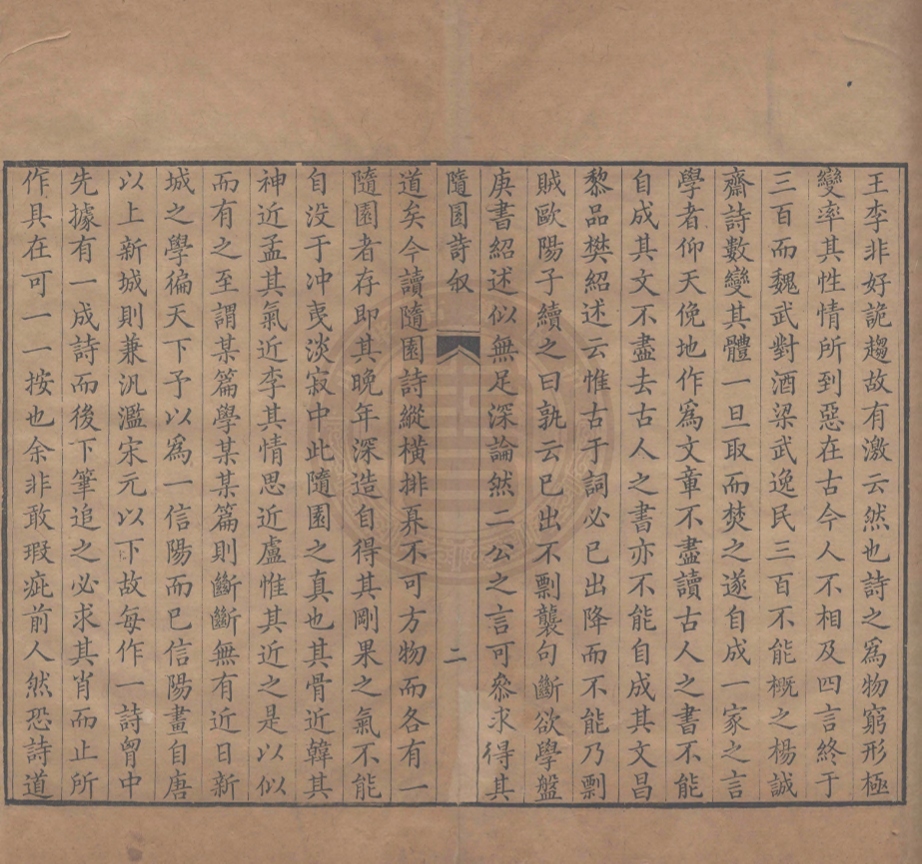 王李非好詭趨故有激云然也詩之爲物窮形極
變率其性情所到惡在古今人不相及四言終于
三百而魏武對酒梁武逸民三百不能概之楊誠
齋詩數變其體一旦取而焚之遂自成一家之言
學者仰天俛地作爲文章不盡讀古人之書不能
自成其文不盡去古人之書亦不能自成其文昌
黎品樊紹述云惟古于詞必已出降而不能乃剽
賊歐陽子續之曰孰云已出不剽襲句斷欲學盤
庚書紹述似無足深論然二公之言可叅求得其
隨園詩叙
二
道矣今讀隨園詩縱横排奡不可方物而各有一
隨園者存即其晚年深造自得其剛果之氣不能
自没于冲夷淡寂中此隨園之真也其骨近韓其
神近孟其氣近李其情思近盧惟其近之是以似
而有之至謂某篇學某某篇則斷斷無有近日新
城之學徧天下予以爲一信陽而已信陽畫自唐
以上新城則兼汎濫宋元以下故每作一詩胷中
先據有一成詩而後下筆追之必求其肖而止所
作具在可一一按也余非敢瑕疵前人然恐詩道